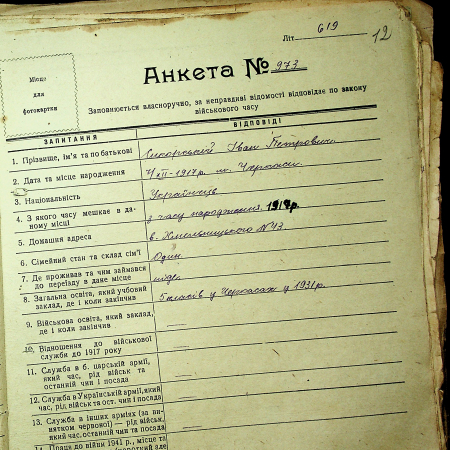 Літ. 619
12
Місце
для
фотокартки
Анкета № 973
Заповнюється власноручно, за неправдиві відомості відповідає по закону
військового часу
ЗАПИТАННЯ
ВІДПОВІДІ
1. Прізвище, ім'я та по батькові
Сикорський Іван Петрович
2. Дата та місце народження
4 XII-1917 р. м. Черкаси.
3. Національність
Українець
4. З якого часу мешкає в да-
ному місці
з часу народження 1917р.
5. Домашня адреса
в. Хмельницького №43
6. Сімейний стан та склад сім'ї
Один
7. Де проживав та чим займався
до переїзду в дане місце
8. Загальна освіта, який учбовий
заклад, де і коли закінчив
у Черкасах у 1931 р.
9. Військова освіта, який заклад,
де і коли закінчив
10. Відношення до військової
служби до 1917 року
11. Служба в б. царській армії,
який час, рід військ та
останній чин і посада
12. Служба в Українській армії, який
час, рід військ та ост. чин і посада
13. Служба в інших арміях (за ви-
нятком червоної) — рід військ,
який час, останній чин та посада
14. Праця до війни 1941 р., місце та